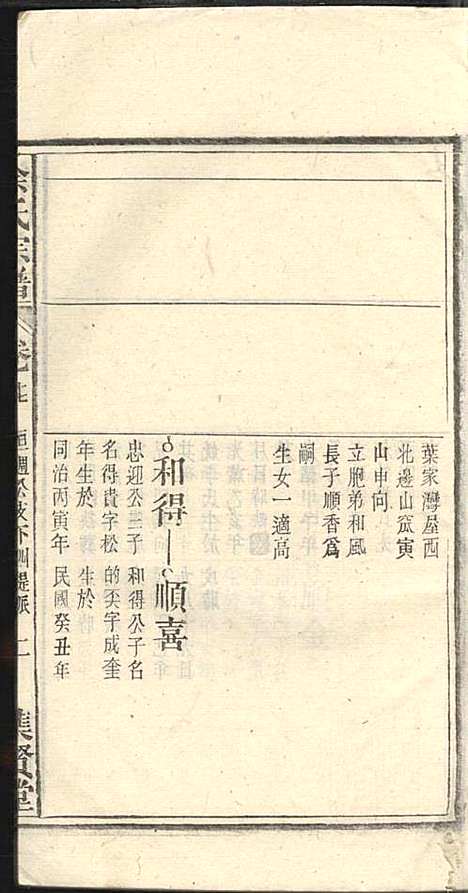 葉家灣屋西
北邊山寅
山申向
立胞弟和風
長子順香爲
嗣
生女一適高
和得 順喜
忠迎公三子 和得公子名
名得貴字松 的字成奎
年生於 生於
同治丙寅年 民國癸丑年
余氏宗譜 卷 二 集賢堂